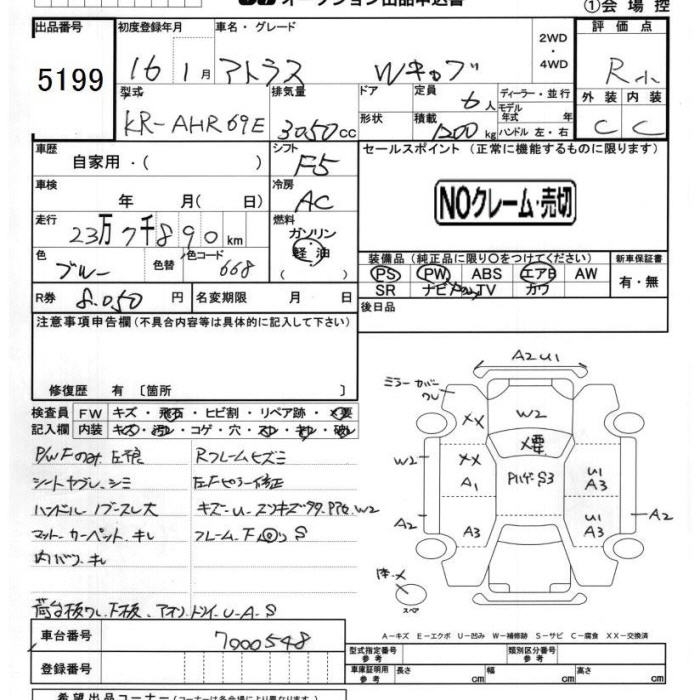 オークション出品申込書
①会場控
出品番号 初度登録年月 車名・グレード 2WD・4WD 評価点
5199 16 1月 アトラス Wキャブ R
型式 排気量 ドア 定員 6人 ディーラー・並行 外装 内装
モデル年式 年
KR-AHR69E 3050cc 形状 積載 1200kg ハンドル 左・右 C C
車歴 シフト セールスポイント (正常に機能するものに限ります)
自家用・( ) F5
車検 冷房 NOクレーム・売切
年 月( 日) AC
走行 燃料
23万7千890km ガソリン
軽油
色 色替 色コード 装備品(純正品に限り○をつけてください) 新車保証書
ブルー 668 PS PW ABS エアB AW 有・無
SR ナビ TV カワ
R券 8,050円 名変期限 月 日 後日品
注意事項申告欄(不具合内容等は具体的に記入して下さい)
修復歴 有 〔箇所 〕
検査員 FW キズ・飛石・ヒビ割・リペア跡・×要
記入欄 内装 キズ・汚レ・コゲ・穴・スレ・キレ・破レ
P/W Fのみ Rフレームヒズミ
シートヤブレ、シミ 左Fピラー修正
ハンドル
マット カーペット キレ
内バリ キレ
A2 U1
ミラーカバーワレ
XX W2
×要
W2 XX U1
A1 A3
U1
A2 A3 A3 A2
スペア
A-キズ E-エクボ U-凹み W-補修跡 S-サビ C-腐食 XX-交換済
車台番号 7000548 型式指定番号 参考 類別区分番号 参考
登録番号 車庫証明用 参考 長さ cm 幅 cm 高さ cm
希望出品コーナー(コーナーは各会場により異なります)